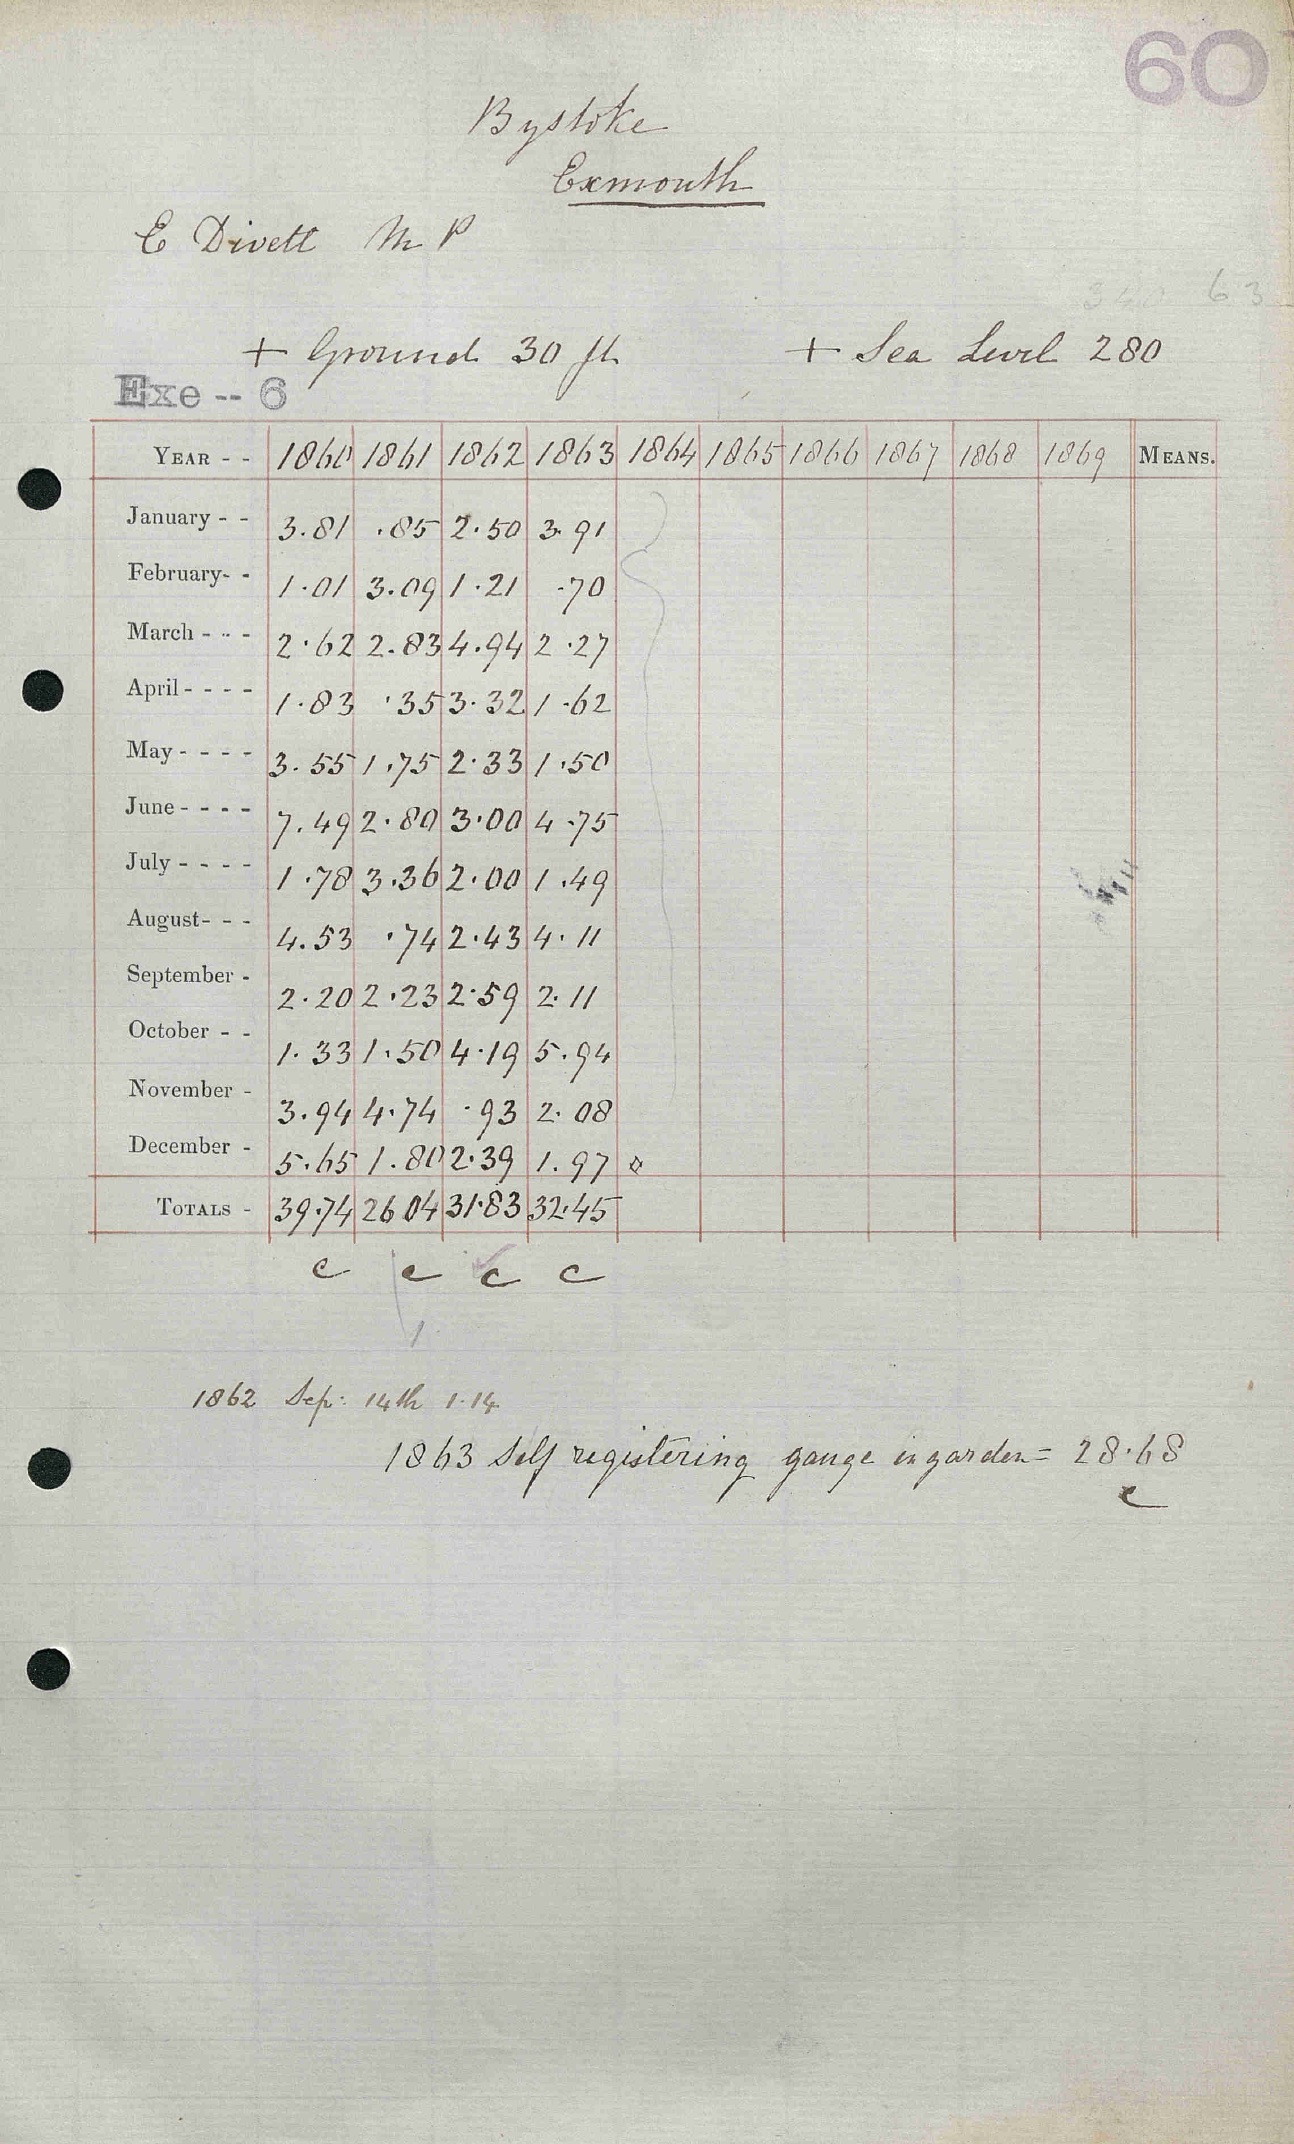 60
Bystoke
Exmouth
E Divett M P
63
+ Ground 30 ft + Sea Level 280
Exe -- 6
YEAR - - 1860 1861 1862 1863 1864 1865 1866 1867 1868 1869 MEANS.
January - - 3.81 .85 2.50 3.91
February- - 1.01 3.09 1.21 .70
March - - - 2.62 2.83 4.94 2.27
April - - - - 1.83 .35 3.32 1.62
May - - - - 3.55 1.75 2.33 1.50
June - - - - 7.49 2.80 3.00 4.75
July - - - - 1.78 3.36 2.00 1.49
August- - - 4.53 .74 2.43 4.11
September - 2.20 2.23 2.59 2.11
October - - 1.33 1.50 4.19 5.94
November - 3.94 4.74 .93 2.08
December - 5.65 1.80 2.39 1.97
TOTALS - 39.74 26 04 31.83 32.45
c c c c
1
1862 Sep: 14th 1.14
1863 Self registering gauge in garden = 28.68
c